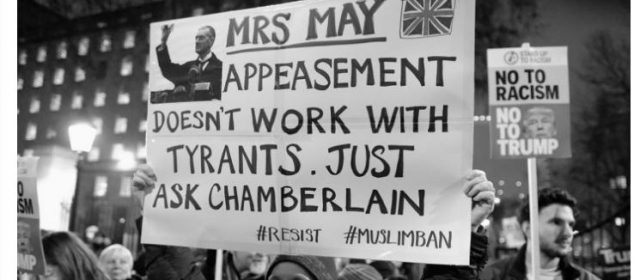 MRS MAY
APPEASEMENT
DOESN'T WORK WITH
TYRANTS. JUST
ASK CHAMBERLAIN
#RESIST #MUSLIMBAN
STAND UP
TO RACISM
NO TO
RACISM
NO TO
TRUMP
TO
SM